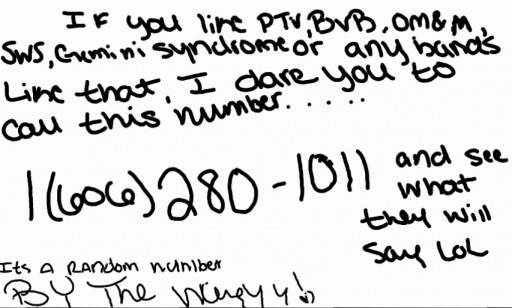 IF you like PTV, BVB, OM&M,
SWS, Gemini syndrome or any bands
Like that, I dare you to
call this number.....
1(606)280-1011
and see
what
they will
say LoL
Its a Random number
BY The way y!